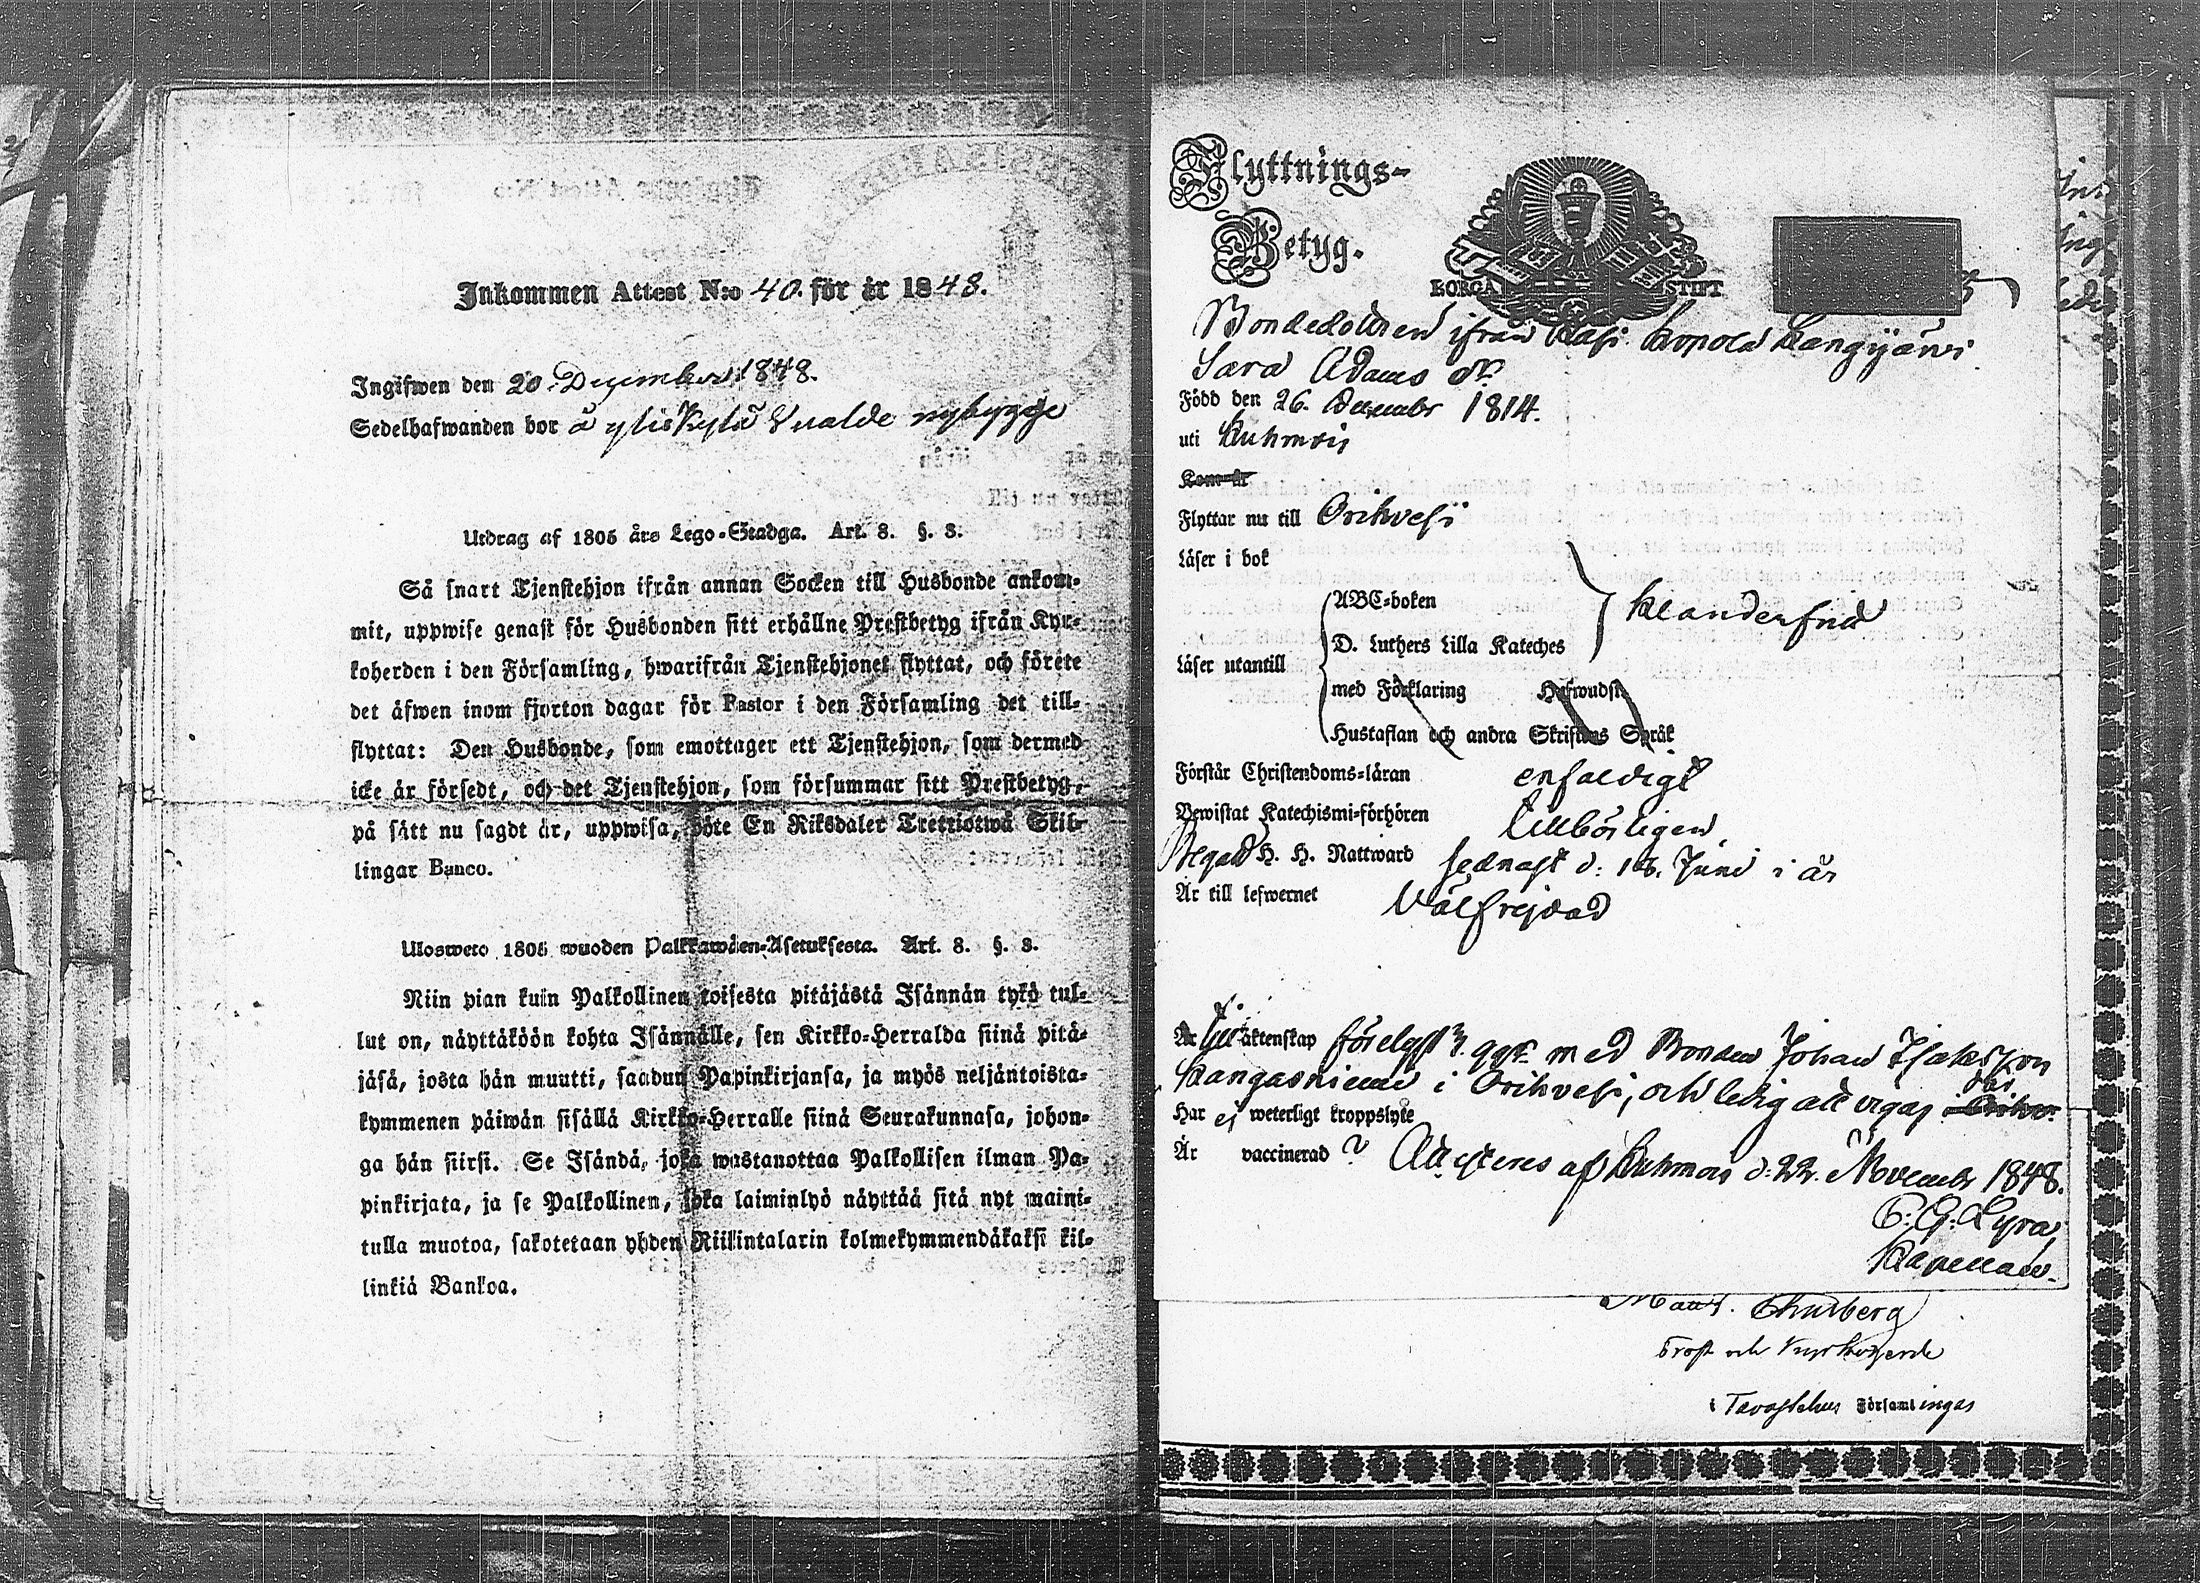 Inkommen Attest N:o 40. för år 1848.
Ingifwen den 20 December 1848.
Sedelhafwanden bor å yliskylä Sualde nybygge
Utdrag af 1805 års Lego-Stadga. Art. 8. §. 3.
Så snart Tjenstehjon ifrån annan Socken till Husbonde ankom-
mit, uppwise genast för Husbonden sitt erhållne Prestbetyg ifrån Kyr-
koherden i den Församling, hwarifrån Tjenstehjonet flyttat, och förete
det äfwen inom fjorton dagar för Pastor i den Församling det till-
flyttat: Den Husbonde, som emottager ett Tjenstehjon, som dermed
icke är försedt, och det Tjenstehjon, som försummar sitt Prestbetyg,
på sätt nu sagdt är, uppwisa, böte En Riksdaler Trettiotwå Skil-
lingar Banco.
Ulosweto 1805 wuoden Palkkawäen-Asetuksesta. Art. 8. §. 3.
Niin pian kuin Palkollinen toisesta pitäjästä Isännän tykö tul-
lut on, näyttäköön kohta Isännälle, sen Kirkko-Herralda siinä pitä-
jäsä, josta hän muutti, saadun Papinkirjansa, ja myös neljäntoista-
kymmenen päiwän sisällä Kirkko-Herralle siinä Seurakunnasa, johon-
ga hän siirsi. Se Isändä, joka wastanottaa Palkollisen ilman Pa-
pinkirjata, ja se Palkollinen, joka laiminlyö näyttää sitä nyt maini-
tulla muotoa, sakotetaan yhden Riikintalarin kolmekymmendäkaksi kil-
linkiä Bankoa.
Flyttnings-
Betyg.
BORGÅ STIFT
Bondedottren ifrån Kasi Langijärvi
Sara Adams dr.
Född den 26. December 1814.
uti Kuhmois
Kom år
Flyttar nu till Orihvesi
Läser i bok
Läser utantill
ABC-boken
D. Luthers Lilla Kateches
med Förklaring Hufwudst.
Hustaflan och andra Skriftens Språk
Klanderfrid
Förstår Christendoms-läran enfaldigt
Bewistat Katechismi-förhören tillbörligen
Begått H. H. Nattward sednast d: 16. Juni i år
Är till lefwernet Välfrejdad
Är till äktenskap förelyst 3. ggr med Bonden Johan Isaksson
Kangasniemi i Orihvesi, och ledig att vigas der
Har ej weterligt kroppslyte
Är vaccinerad ? Attesteres af Kuhmois d: 22. November 1848.
C: G: Lyra,
Kapellan.
Maur. Churberg
Prost och Kyrkoherde
i Tavastehus Församlingas